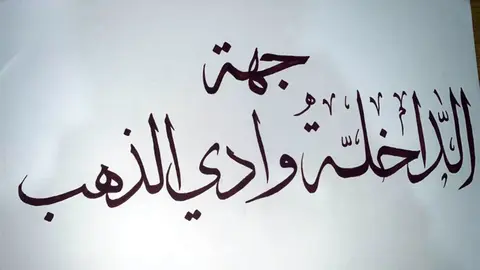 جهة
الدّاخلةُ وادي الذهب